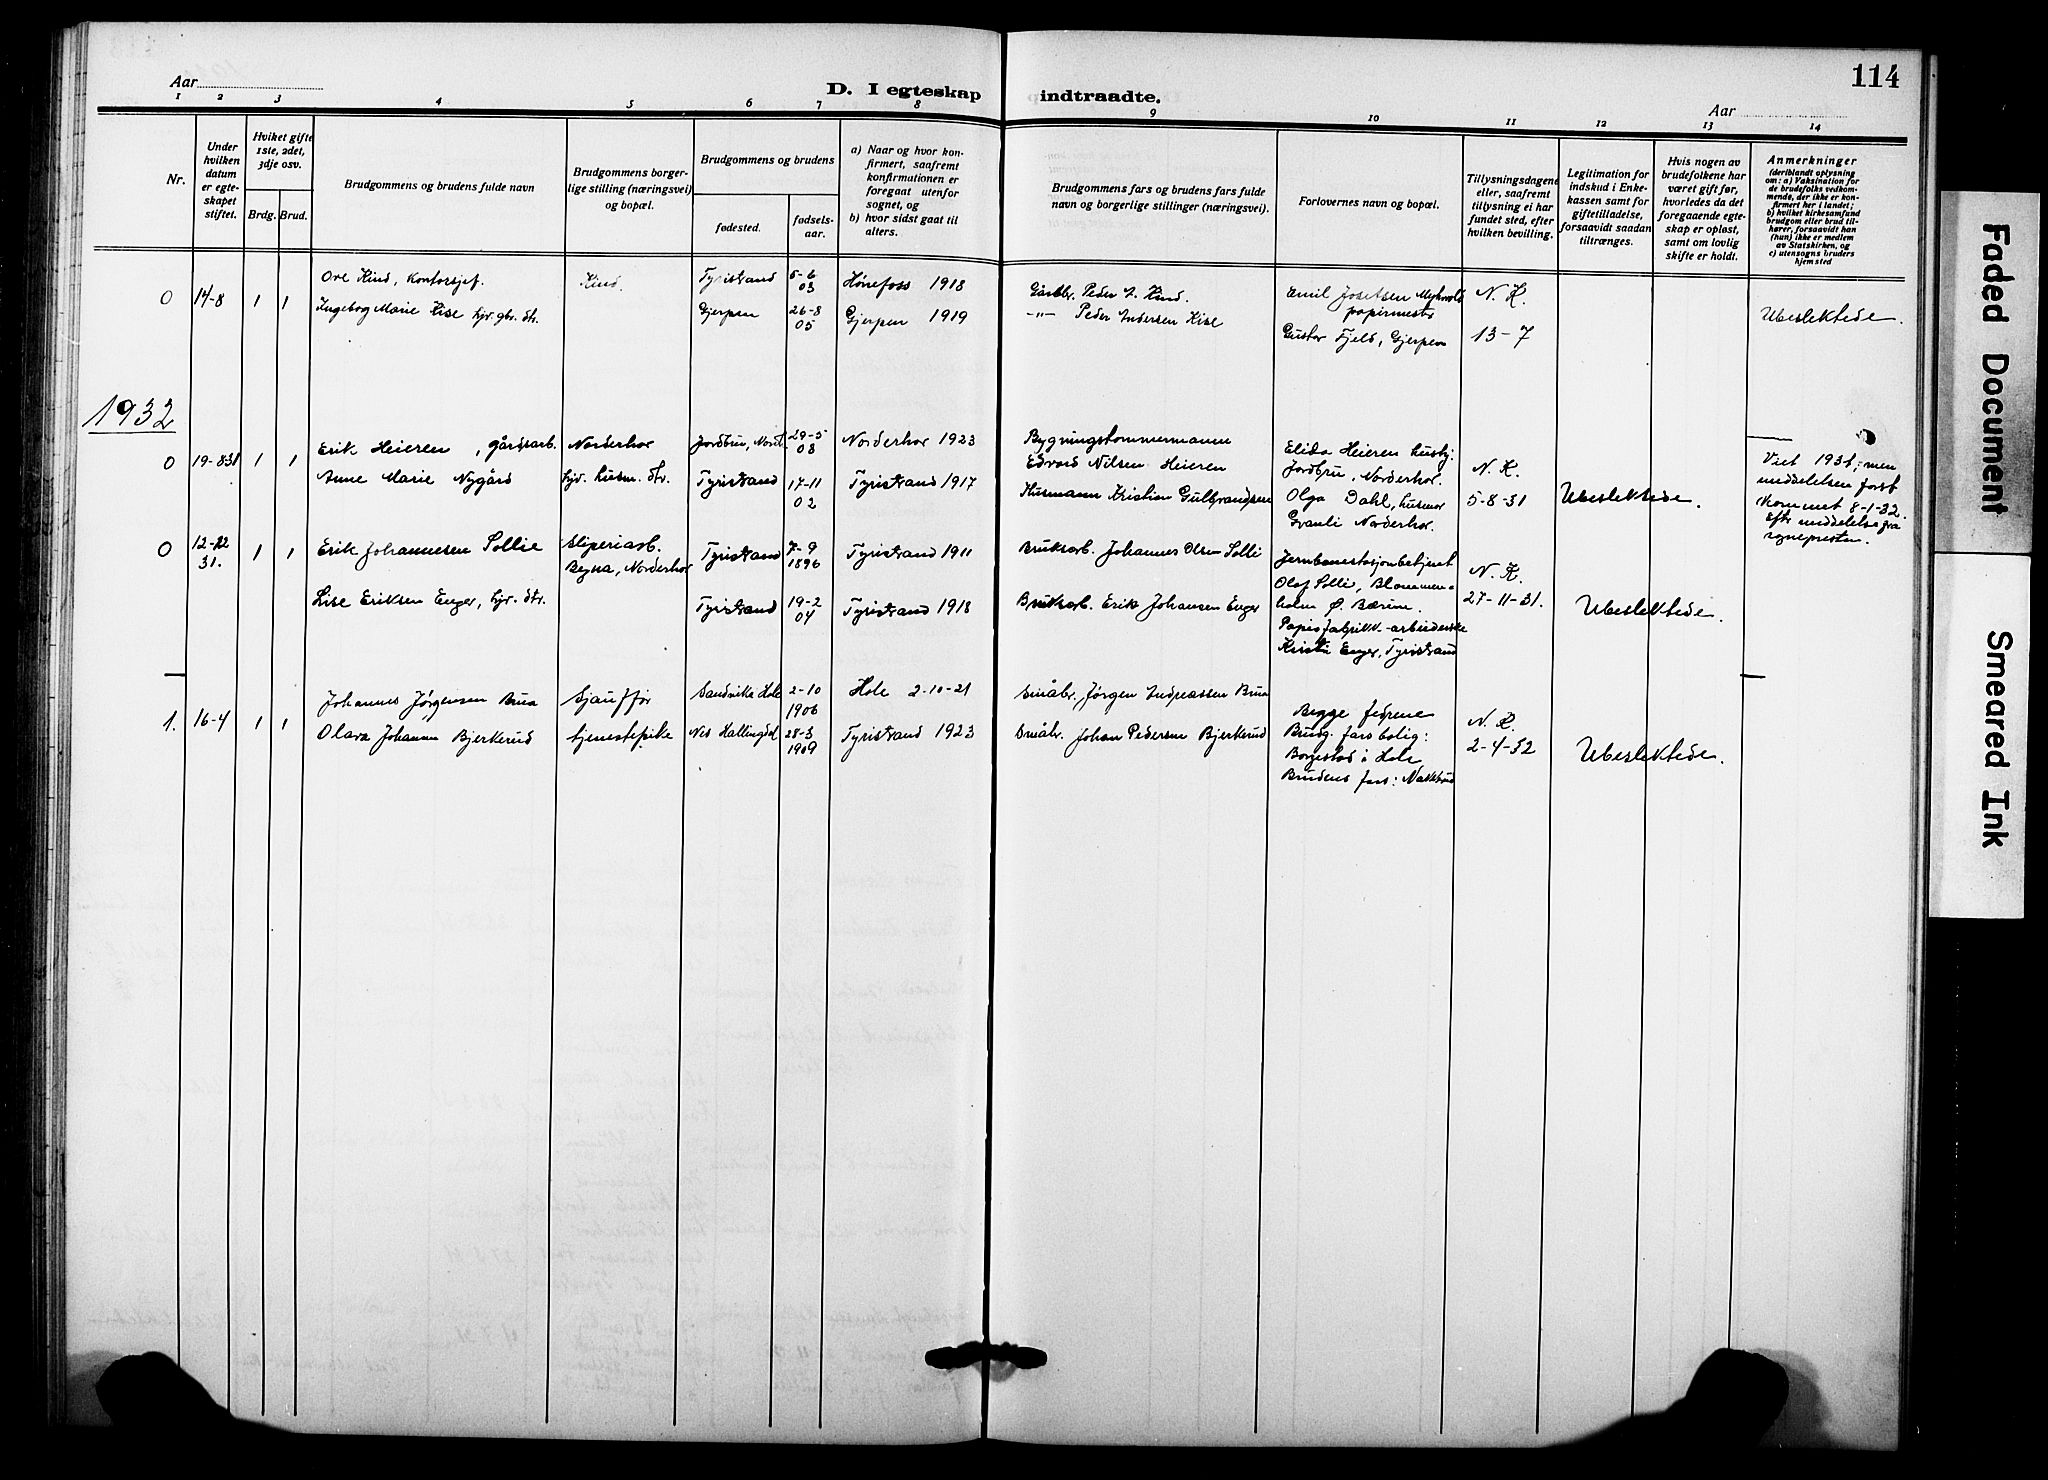 114
Aar
D. I egteskap indtraadte.
Aar
1 2 3 4 5 6 7 8 9 10 11 12 13 14
Nr.
Under
hvilken
datum
er egte-
skapet
stiftet.
Hviket gifte
1ste, 2det,
3dje osv.
Brdg. Brud.
Brudgommens og brudens fulde navn
Brudgommens borger-
lige stilling (næringsvei)
og bopæl.
Brudgommens og brudens
fødested.
fødsels-
aar.
a) Naar og hvor kon-
firmert, saafremt
konfirmationen er
foregaat utenfor
sognet, og
b) hvor sidst gaat til
alters.
Brudgommens fars og brudens fars fulde
navn og borgerlige stillinger (næringsvei).
Forlovernes navn og bopæl.
Tillysningsdagene
eller, saafremt
tillysning ei har
fundet sted, efter
hvilken bevilling.
Legitimation for
indskud i Enke-
kassen samt for
giftetilladelse,
forsaavidt saadan
tiltrænges.
Hvis nogen av
brudefolkene har
været gift før,
hvorledes da det
foregaaende egte-
skap er opløst,
samt om lovlig
skifte er holdt.
Anmerkninger
(deriblandt oplysning
om: a) Vaksination for
de brudefolks vedkom-
mende, der ikke er kon-
firmert her i landet;
b) hvilket kirkesamfund
brudgom eller brud til-
hører, forsaavidt han
(hun) ikke er medlem
av Statskirken, og
c) utensogns bruders
hjemsted
0 14-8 1 1
Ove Kind, kontorsjef.
Ingeborg Marie Kise hjv. gbr. dtr.
Kind.
Tyristrand 5-6 03
Gjerpen 26-8 05
Hønefoss 1918
Gjerpen 1919
Gårdbr. Peder Kind.
-"- Peder Andersen Kise
Emil Josefsen
papirmester
Gustav Fjeld, Gjerpen
N. K.
13-7
Ubeslektede.
1932
0 19-8 31 1 1
Erik Heieren, gårdsarb.
Anne Marie Nygård
Norderhov
hjv. husm. dtr.
Jordbru, Nord. 29-5 03
Tyristrand 17-11 02
Norderhov 1923
Tyristrand 1917
Bygningstømmermann
Edvard Nilsen Heieren
Husmann Kristian Gulbrandsen
Elida Heieren husb.
Jordbru, Norderhov.
Olga Dahl, husmor
Granli Norderhov.
N. K.
5-8-31
Ubeslektede.
Viet 1931, men
meddelelsen først
kommet 8-1-32.
Eftr meddelelse fra
sognepresten.
0 12-12 31. 1 1
Erik Johannesen Sollie
Lise Eriksen Enger, hjv. dtr.
Sliperiarb.
Begna, Norderhov
Tyristrand 7-9 1896
Tyristrand 19-2 04
Tyristrand 1911
Tyristrand 1918
Bruksarb. Johannes Olsen Solli
Bruksarb. Erik Johansen Enger
Jernbanestasjonbetjent
Olaf Solli, Blommen-
holm Ø. Bærum.
Papirfabrikk-arbeiderske
Kirsti Enger, Tyristrand
N. K.
27-11-31.
Ubeslektede.
1. 16-4 1 1
Johannes Jørgensen Brua
Olava Johanna Bjerkerud
Sjauffør
tjenestepike
Sandvika Hole 2-10 1906
Nes Hallingdal 28-3 1909
Hole 2-10-21
Tyristrand 1923
Småbr. Jørgen Andreassen Brua
Småbr. Johan Pedersen Bjerkerud
Begge fedrene
Brudg. fars bolig:
Borgestad i Hole
Brudens fars: Nakkerud
N. K.
2-4-32
Ubeslektede.
Faded Document
Smeared Ink